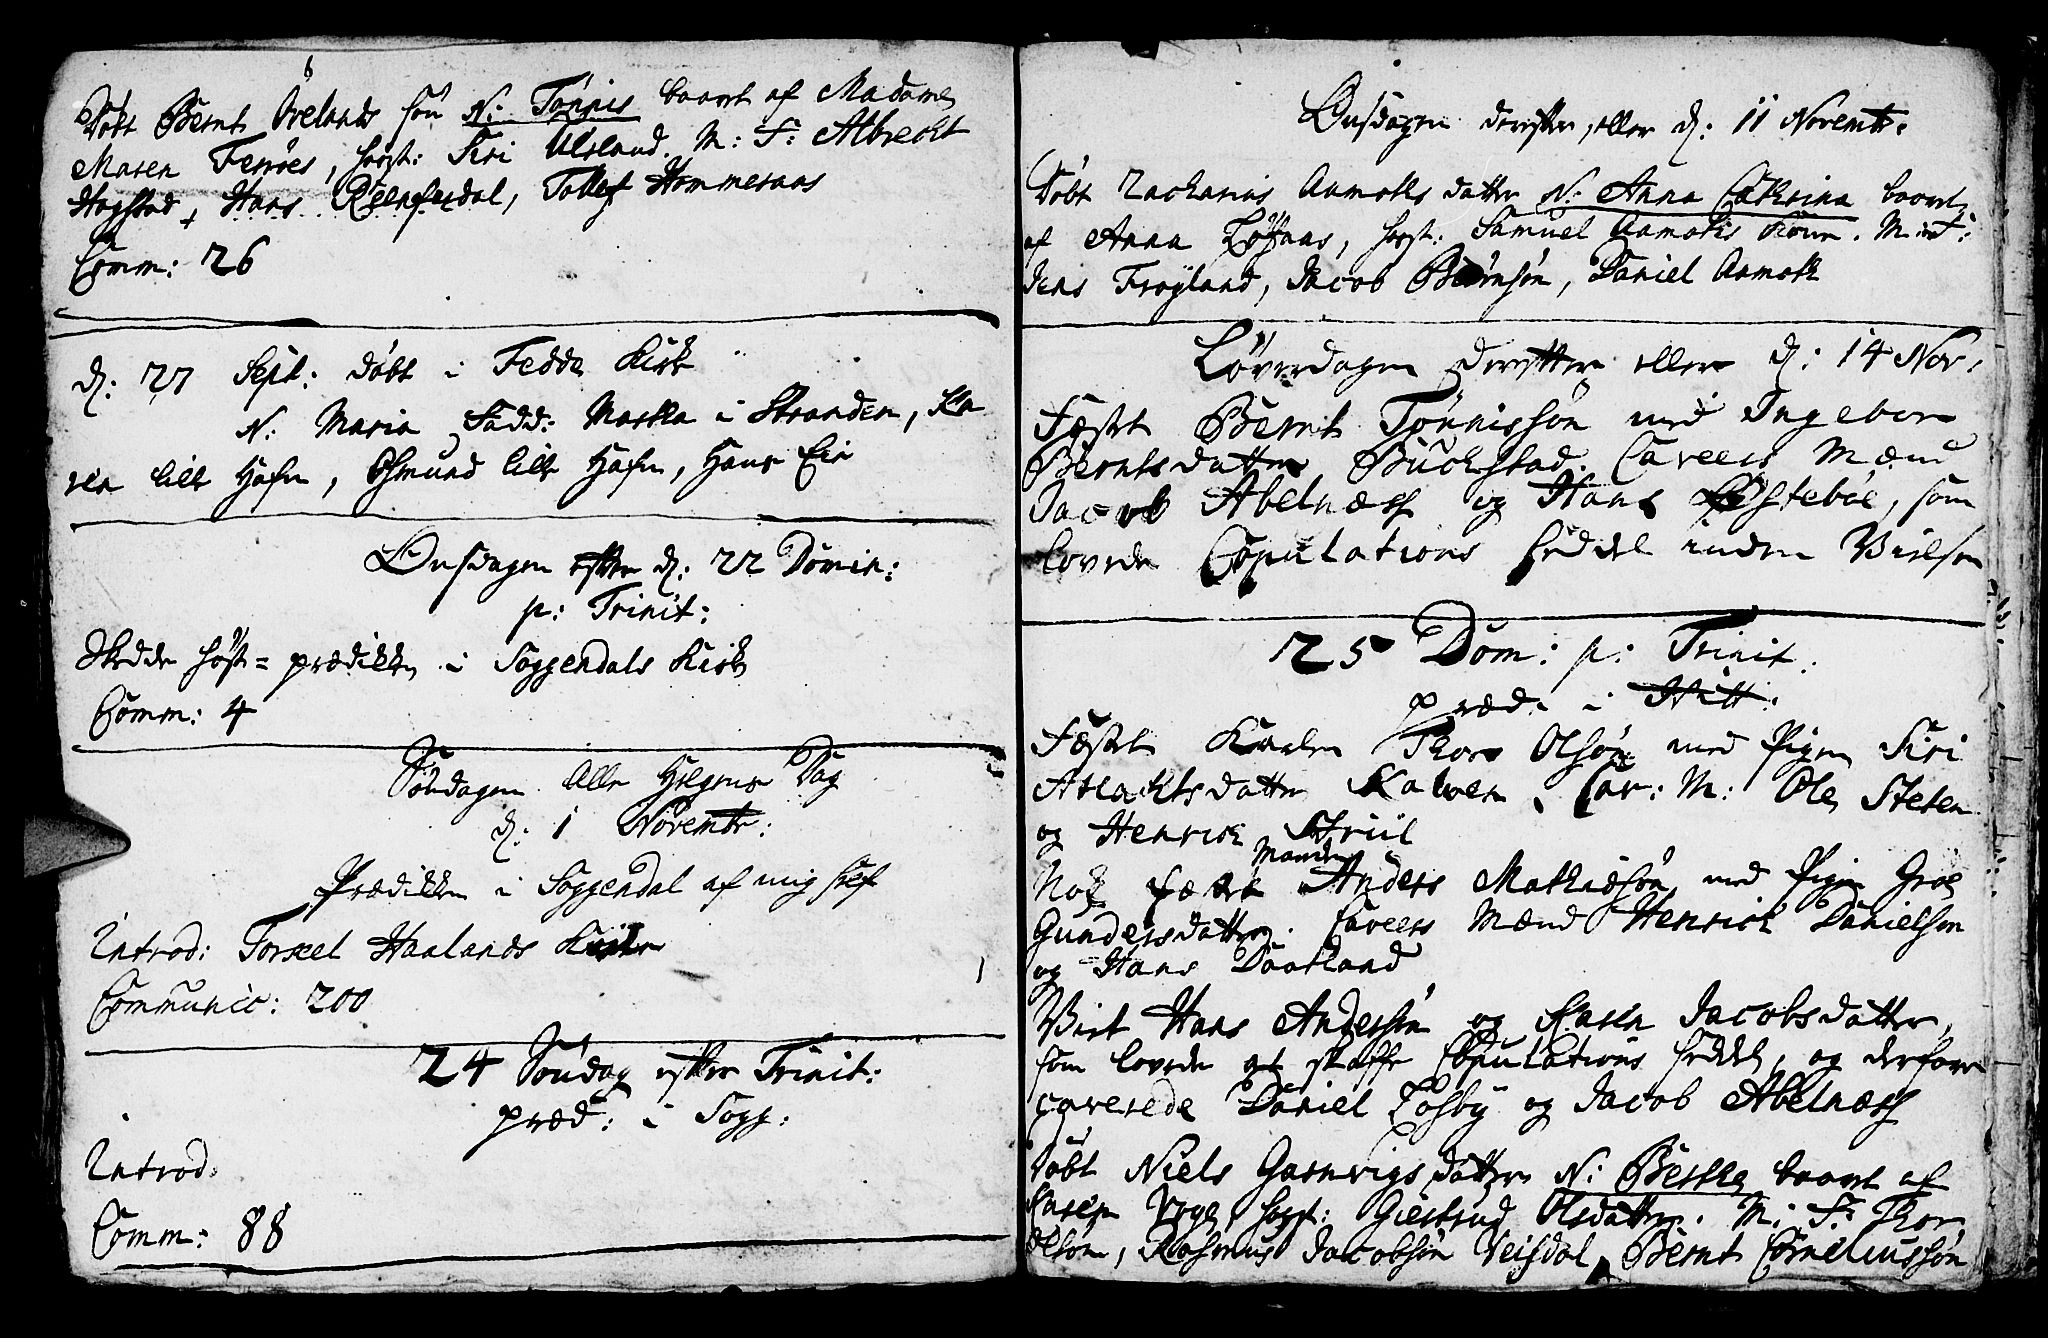 Döbt Bernt Ørelands sön N: Tönnis baaret af Madame
Maren Ferröes, hosst: Siri Ulsland. M: F: Albrecht
Hogstad, Hans Røenfisdal, Tollef Hommeraas
Comm: 26
d: 27 Sept: döbt i Fedde Kirk
N: Maria Fadd: Martha i Stranden, Ka
ren lille Hafn, Osmund lille Hafn, Hans Eie
Onsdagen efter d: 22 Domin:
p: Trinit:
Skedde höst-prædiken i Soggendals Kirke
Comm: 4
Söndagen Alle Helgens Dag
d: 1 Novembr:
Prædiken i Soggendal af mig self
Introd: Torkel Haalands Kone
Communic: 200
24 Söndag efter Trinit:
præd: i Sogg:
Introd.
Comm: 88
Onsdagen derefter, eller d: 11 Novembr:
Döbt Zacharias Aamoths datter N: Anna Cathrina baaret
af Anna Løffaas, hosst: Samuel Aamots Kone. M: F:
Jens Frøyland, Jacob Biörnsön, Daniel Aamoth
Løverdagen derefter eller d: 14 Nov:
Fæstet Bernt Tönnissön med Ingebor
Berntsdatter Buchstad. Caveers Mænd
Jacob Abelnæss og Hans Østeböe, som
lovede Copulations seddel inden Vielsen
25 Dom: p: Trinit.
præd: i Hitt:
Fæstet Karlen Thore Olsön med Pigen Siri
Aslachsdatter Kalven. Cav: M: Ole Steen
og Henrich Strüil
Nok fæstet Manden Anders Mathiasön med Pigen Groe
Gundersdatter. Caveers Mænd Henrich Danielsön
og Hans Daatland
Viet Hans Andersön og Karen Jacobsdatter,
som lovede at skaffe Copulations seddel, og derfore
caverede Daniel Losby og Jacob Abelnæss
Döbt Niels Gasevigs datter N: Berthe baaret af
Karen hosst: Giertrud Olsdatter. M: F: Thor
Olsön, Rasmus Jacobsön Veisdal, Bernt Corneliussön